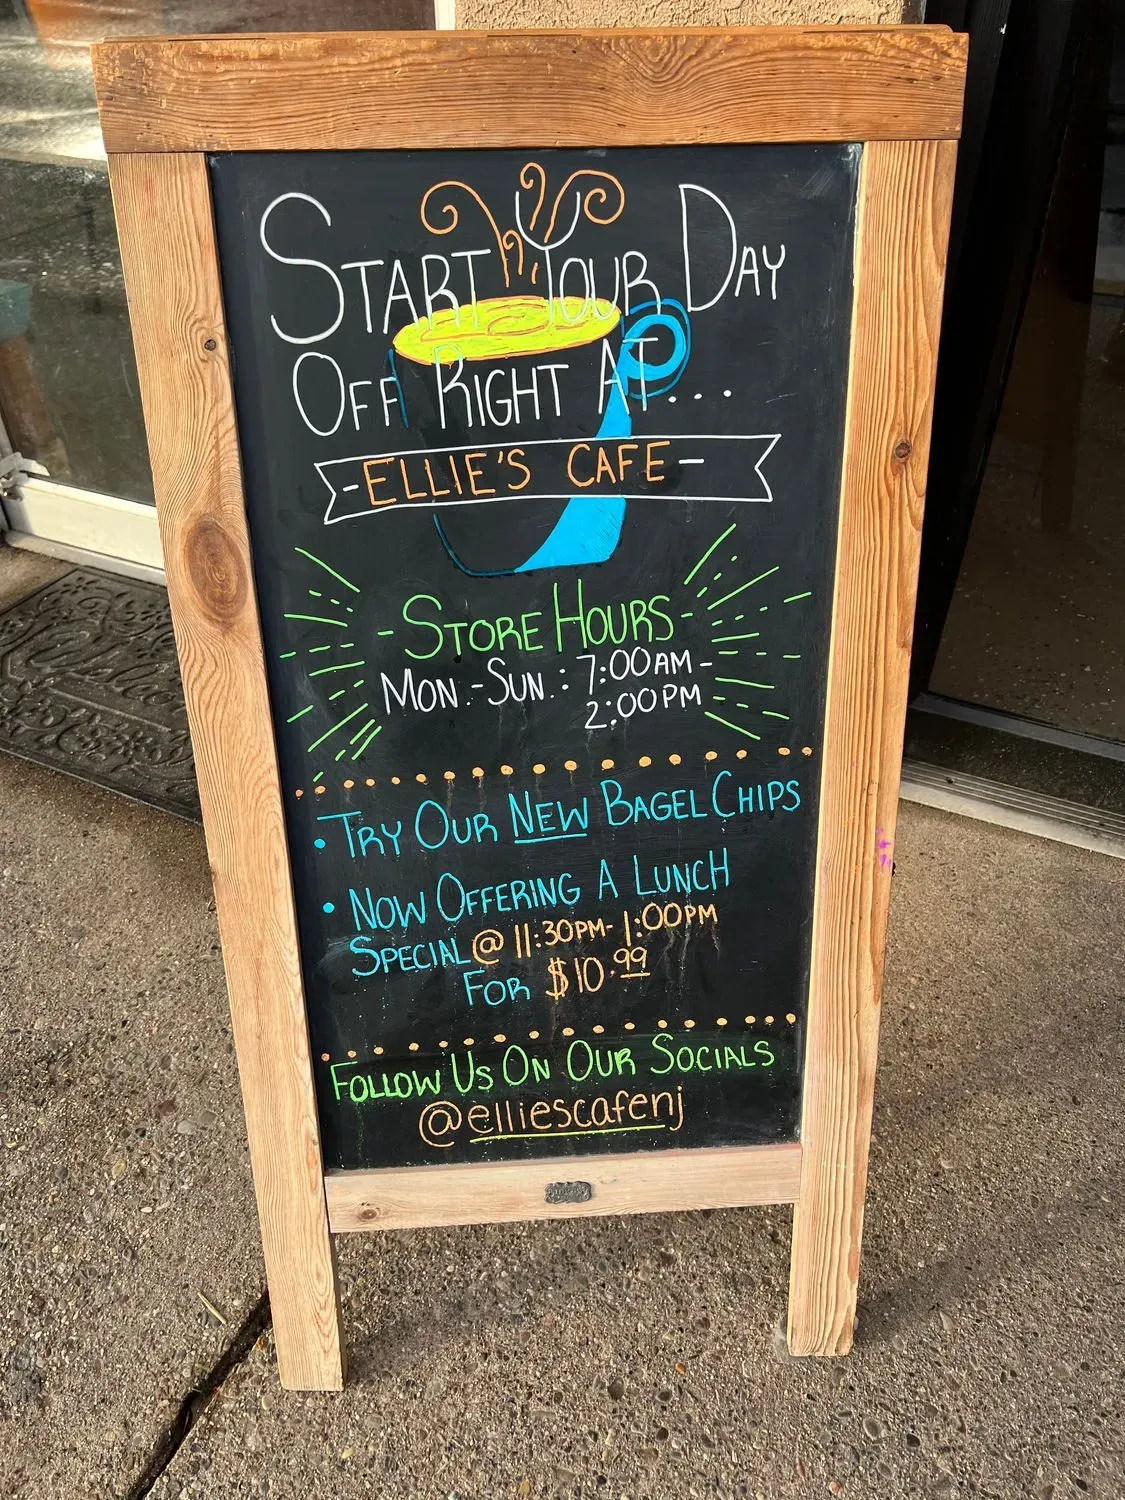 START YOUR DAY
OFF RIGHT AT...
-ELLIE'S CAFE-
-STORE HOURS-
MON.-SUN.: 7:00AM-
2:00PM
• TRY OUR NEW BAGEL CHIPS
• NOW OFFERING A LUNCH
SPECIAL @ 11:30PM-1:00PM
FOR $10.99
FOLLOW US ON OUR SOCIALS
@elliescafenj